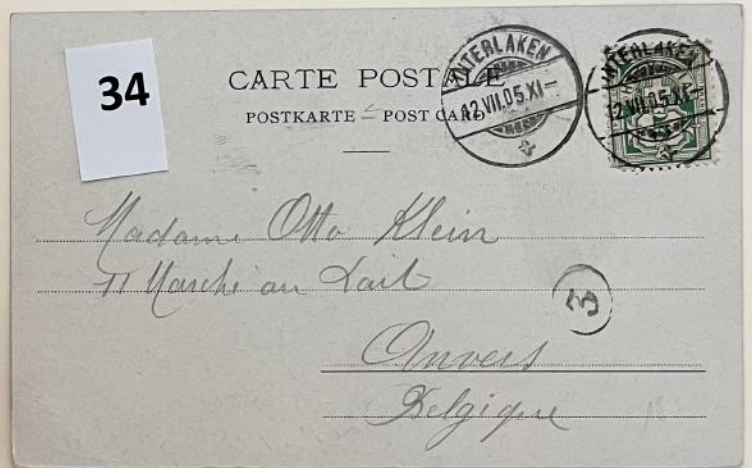 34
CARTE POSTALE
POSTKARTE – POST CARD
INTERLAKEN
12.VII.05.XI–
INTERLAKEN
12.VII.05.XI–
Madame Otto Klein
11 Marché au Lait
3
Anvers
Belgique